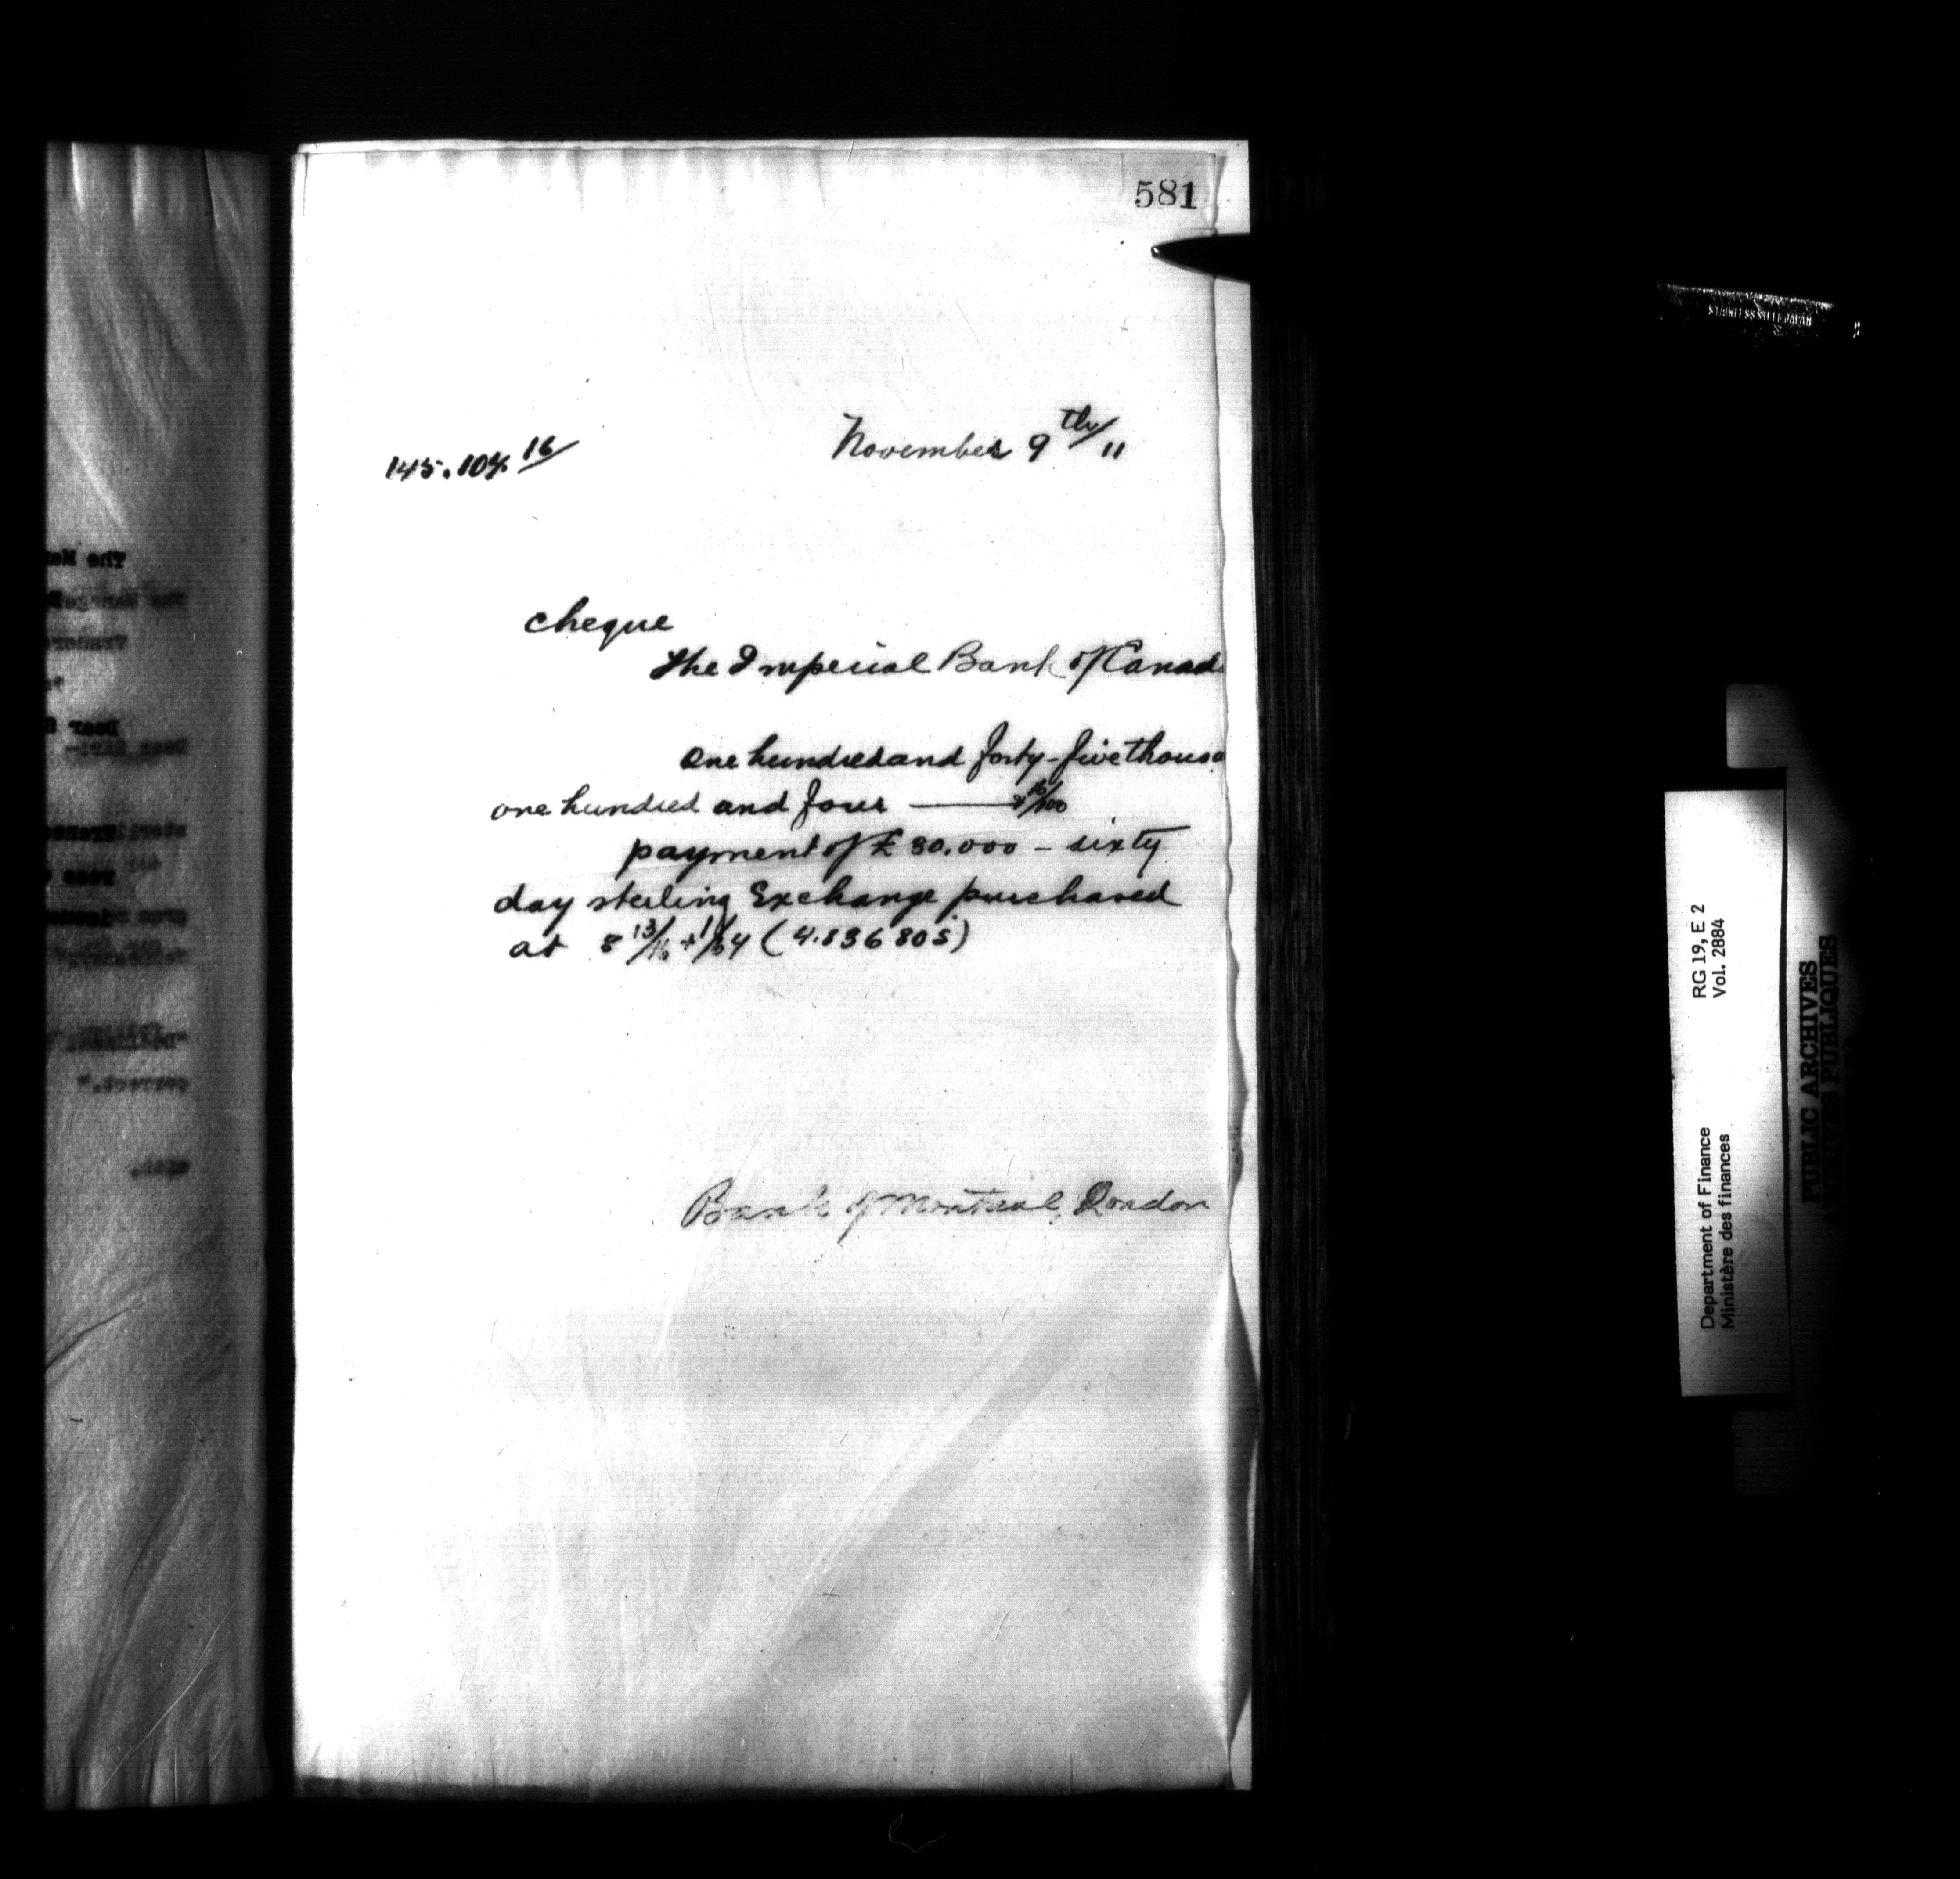 581
145.104 16/
November 9th/11
cheque
The Imperial Bank of Canad
One hundred and forty-five thousa
one hundred and four — 16/100
payment of £30.000 - sixty
day sterling Exchange purchased
at 8 13/16 + 1/64 (4.836805)
Bank of Montreal, London
RG 19, E 2
Vol. 2884
Department of Finance
Ministère des finances
PUBLIC ARCHIVES
ARCHIVES PUBLIQUES
The
Dear
correct."